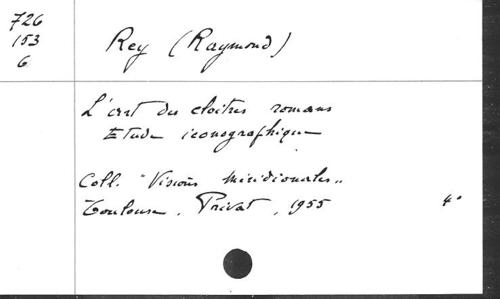 726
153
6
Rey (Raymond)
L'art des cloitres romans
Etude iconographique
Coll. "Visions méridionales"
Toulouse, Privat, 1955 4°